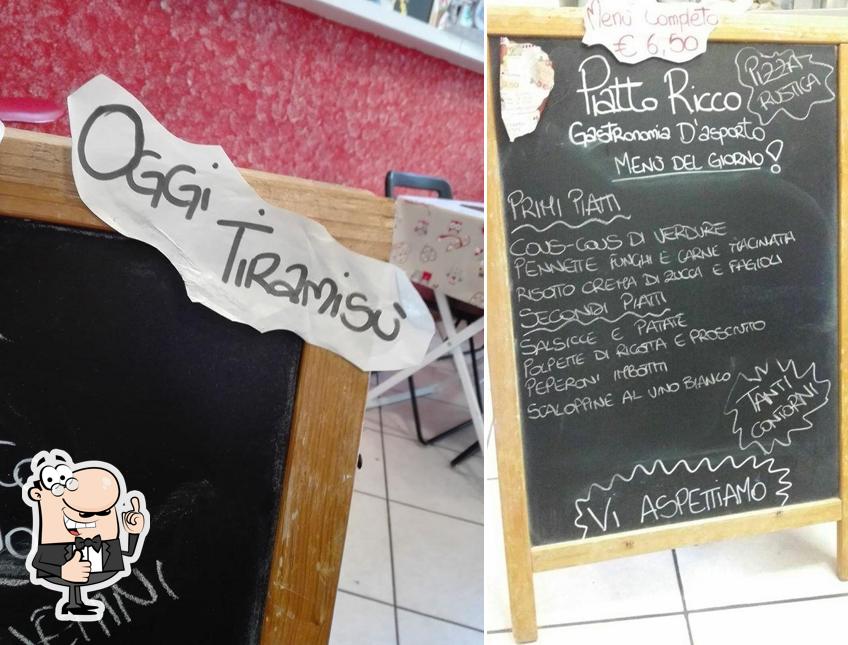 OGGI
TIRAMISÙ
Menù Completo
€ 6,50
PIATTO RICCO
PIZZA
RUSTICA
GASTRONOMIA D'ASPORTO
MENÙ DEL GIORNO!
PRIMI PIATTI
COUS-COUS DI VERDURE
PENNETTE FUNGHI E CARNE MACINATA
RISOTTO CREMA DI ZUCCA E FAGIOLI
SECONDI PIATTI
SALSICCE E PATATE
POLPETTE DI RICOTTA E PROSCIUTTO
PEPERONI IMBOTTITI
SCALOPPINE AL VINO BIANCO
TANTI
CONTORNI
VI ASPETTIAMO